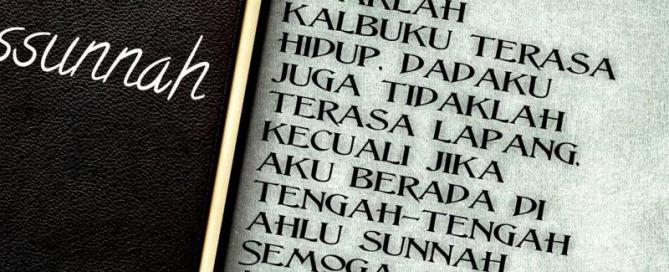 ssunnah
KALBUKU TERASA
HIDUP. DADAKU
JUGA TIDAKLAH
TERASA LAPANG.
KECUALI JIKA
AKU BERADA DI
TENGAH-TENGAH
AHLU SUNNAH
SEMOGA